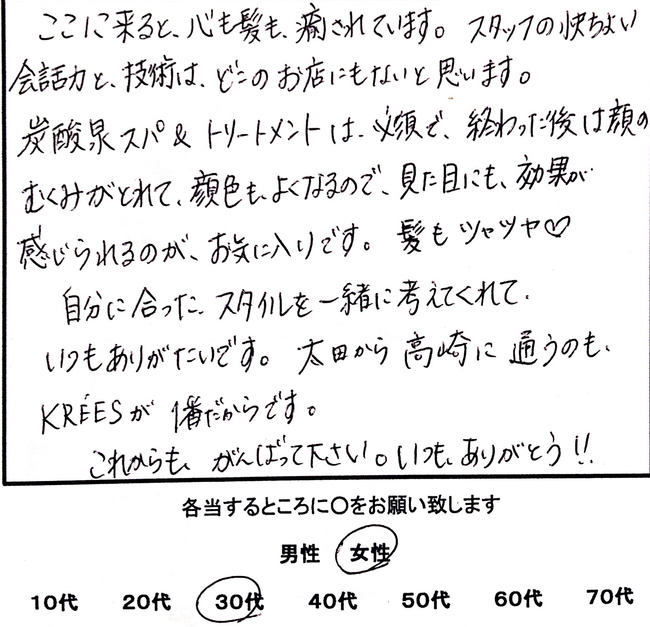 ここに来ると、心も髪も、癒されています。スタッフの快ちよい
会話力と、技術は、どこのお店にもないと思います。
炭酸泉スパ&トリートメントは、必須で、終わった後は顔の
むくみがとれて、顔色も、よくなるので、見た目にも、効果が
感じられるのが、お気に入りです。髪もツヤツヤ♡
自分に合った、スタイルを一緒に考えてくれて、
いつもありがたいです。太田から高崎に通うのも、
KRÉESが1番だからです。
これからも、がんばって下さい。いつも、ありがとう!!
各当するところに〇をお願い致します
男性 女性
10代 20代 30代 40代 50代 60代 70代